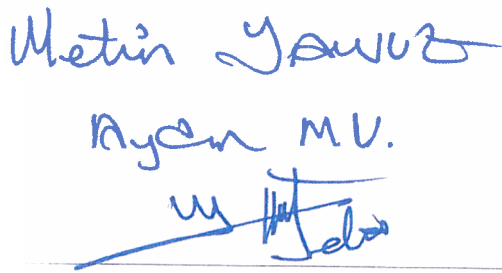 Metin YAVUZ
Aydın M.V.